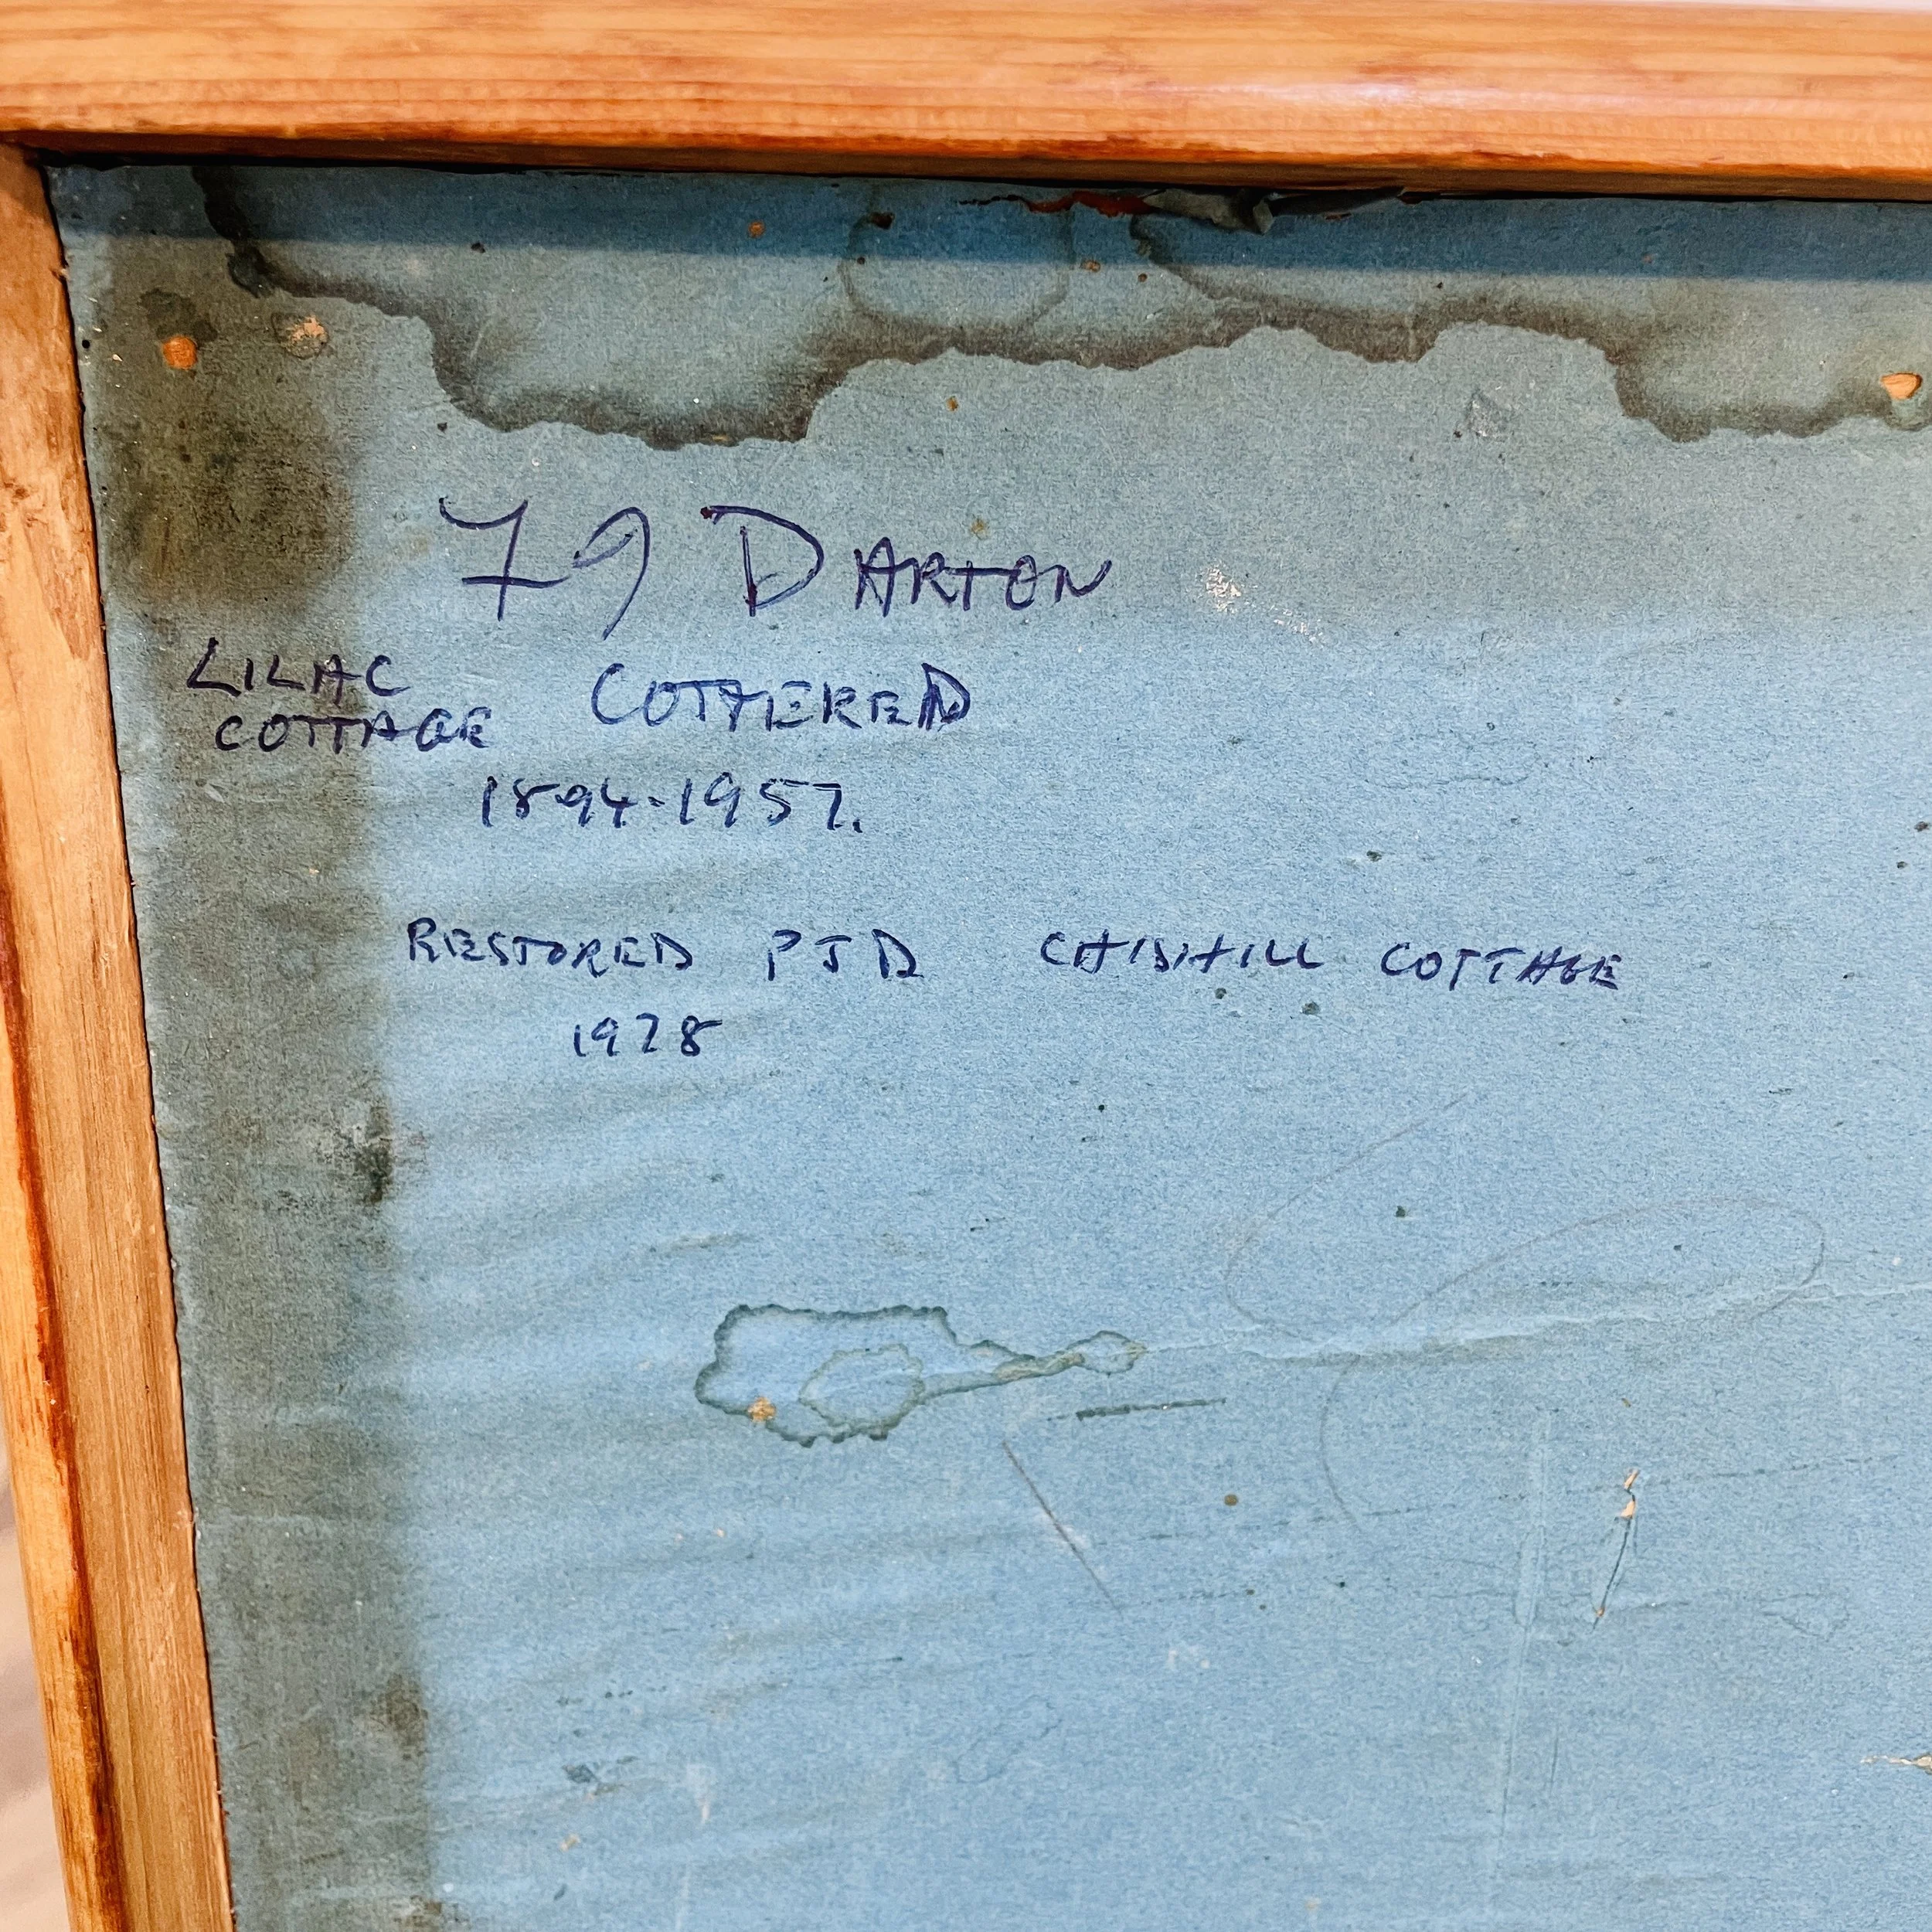 79 DARTON
LILAC
COTTAGE COTTERED
1894-1957.
RESTORED PJD CHISHILL COTTAGE
1978